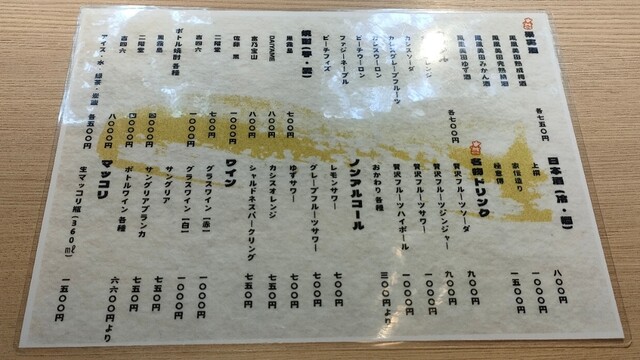 果実酒
鳳凰美田熟成梅酒
鳳凰美田完熟桃酒
鳳凰美田みかん酒
鳳凰美田ゆず酒
各七五〇円
ル
レンジ
カシスソーダ
カシスグレープフルーツ
カシスウーロン
ピーチウーロン
ファジーネーブル
ピーチフィズ
各七〇〇円
焼酎(芋・麦)
黒霧島 七〇〇円
DAIYAME 八〇〇円
富乃宝山 八〇〇円
佐藤 黒 一〇〇〇円
二階堂 七〇〇円
吉四六 一〇〇〇円
ボトル焼酎各種
黒霧島
二階堂
吉四六 八〇〇〇円
アイス・水・緑茶・炭酸 各五〇〇円
日本酒(冷・燗)
上撰 八〇〇円
家伝造り 一〇〇〇円
極意傳 一五〇〇円
名物ドリンク
贅沢フルーツソーダ 九〇〇円
贅沢フルーツジンジャー 九〇〇円
贅沢フルーツサワー 一〇〇〇円
贅沢フルーツハイボール 一〇〇〇円
おかわり各種 三〇〇円より
ノンアルコール
レモンサワー 七〇〇円
グレープフルーツサワー 七〇〇円
ゆずサワー 七〇〇円
カシスオレンジ 七五〇円
シャルドネスパークリング 七五〇円
ワイン
グラスワイン【赤】 一〇〇〇円
グラスワイン【白】 一〇〇〇円
サングリア 七五〇円
サングリアブランカ 七五〇円
ボトルワイン各種 六六〇〇円より
マッコリ
生マッコリ瓶(360㎖) 一五〇〇円